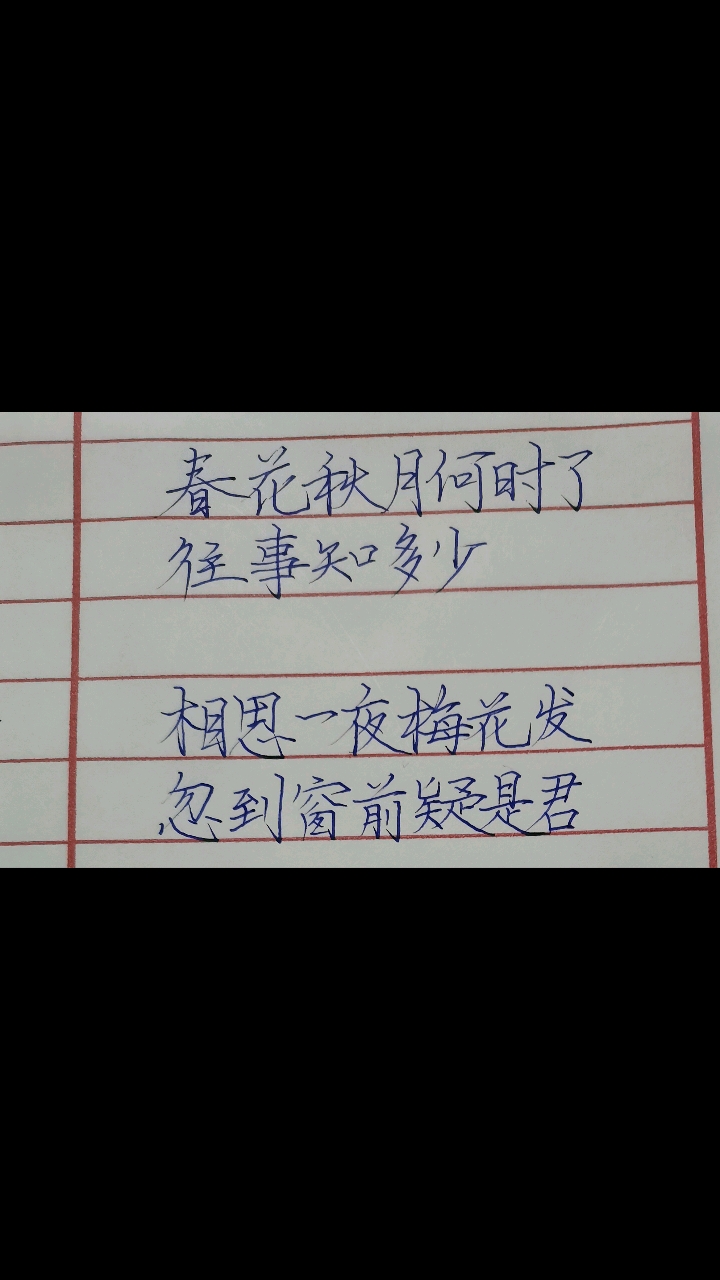 春花秋月何时了
往事知多少
相思一夜梅花发
忽到窗前疑是君